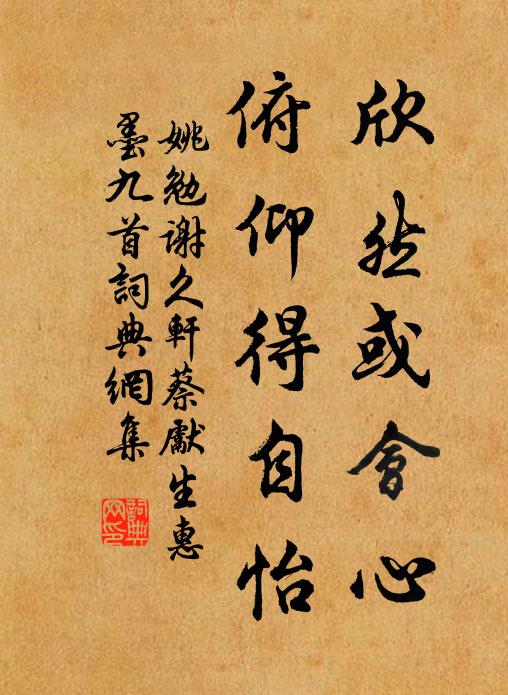 欣然或會心
俯仰得自怡
姚勉謝久軒蔡獻生惠
墨九首詞典網集
詞典
网印